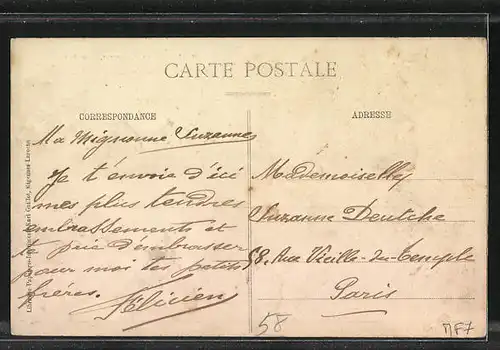 CARTE POSTALE
CORRESPONDANCE
Ma Mignonne Suzanne
Je t'envoie d'ici
mes plus tendres
embrassements et
te prie d'embrasser
pour moi tes petits
frères.
Félicien
ADRESSE
Mademoiselle
Suzanne Deutche
58, Rue Vieille-du-Temple
Paris
58
MF7